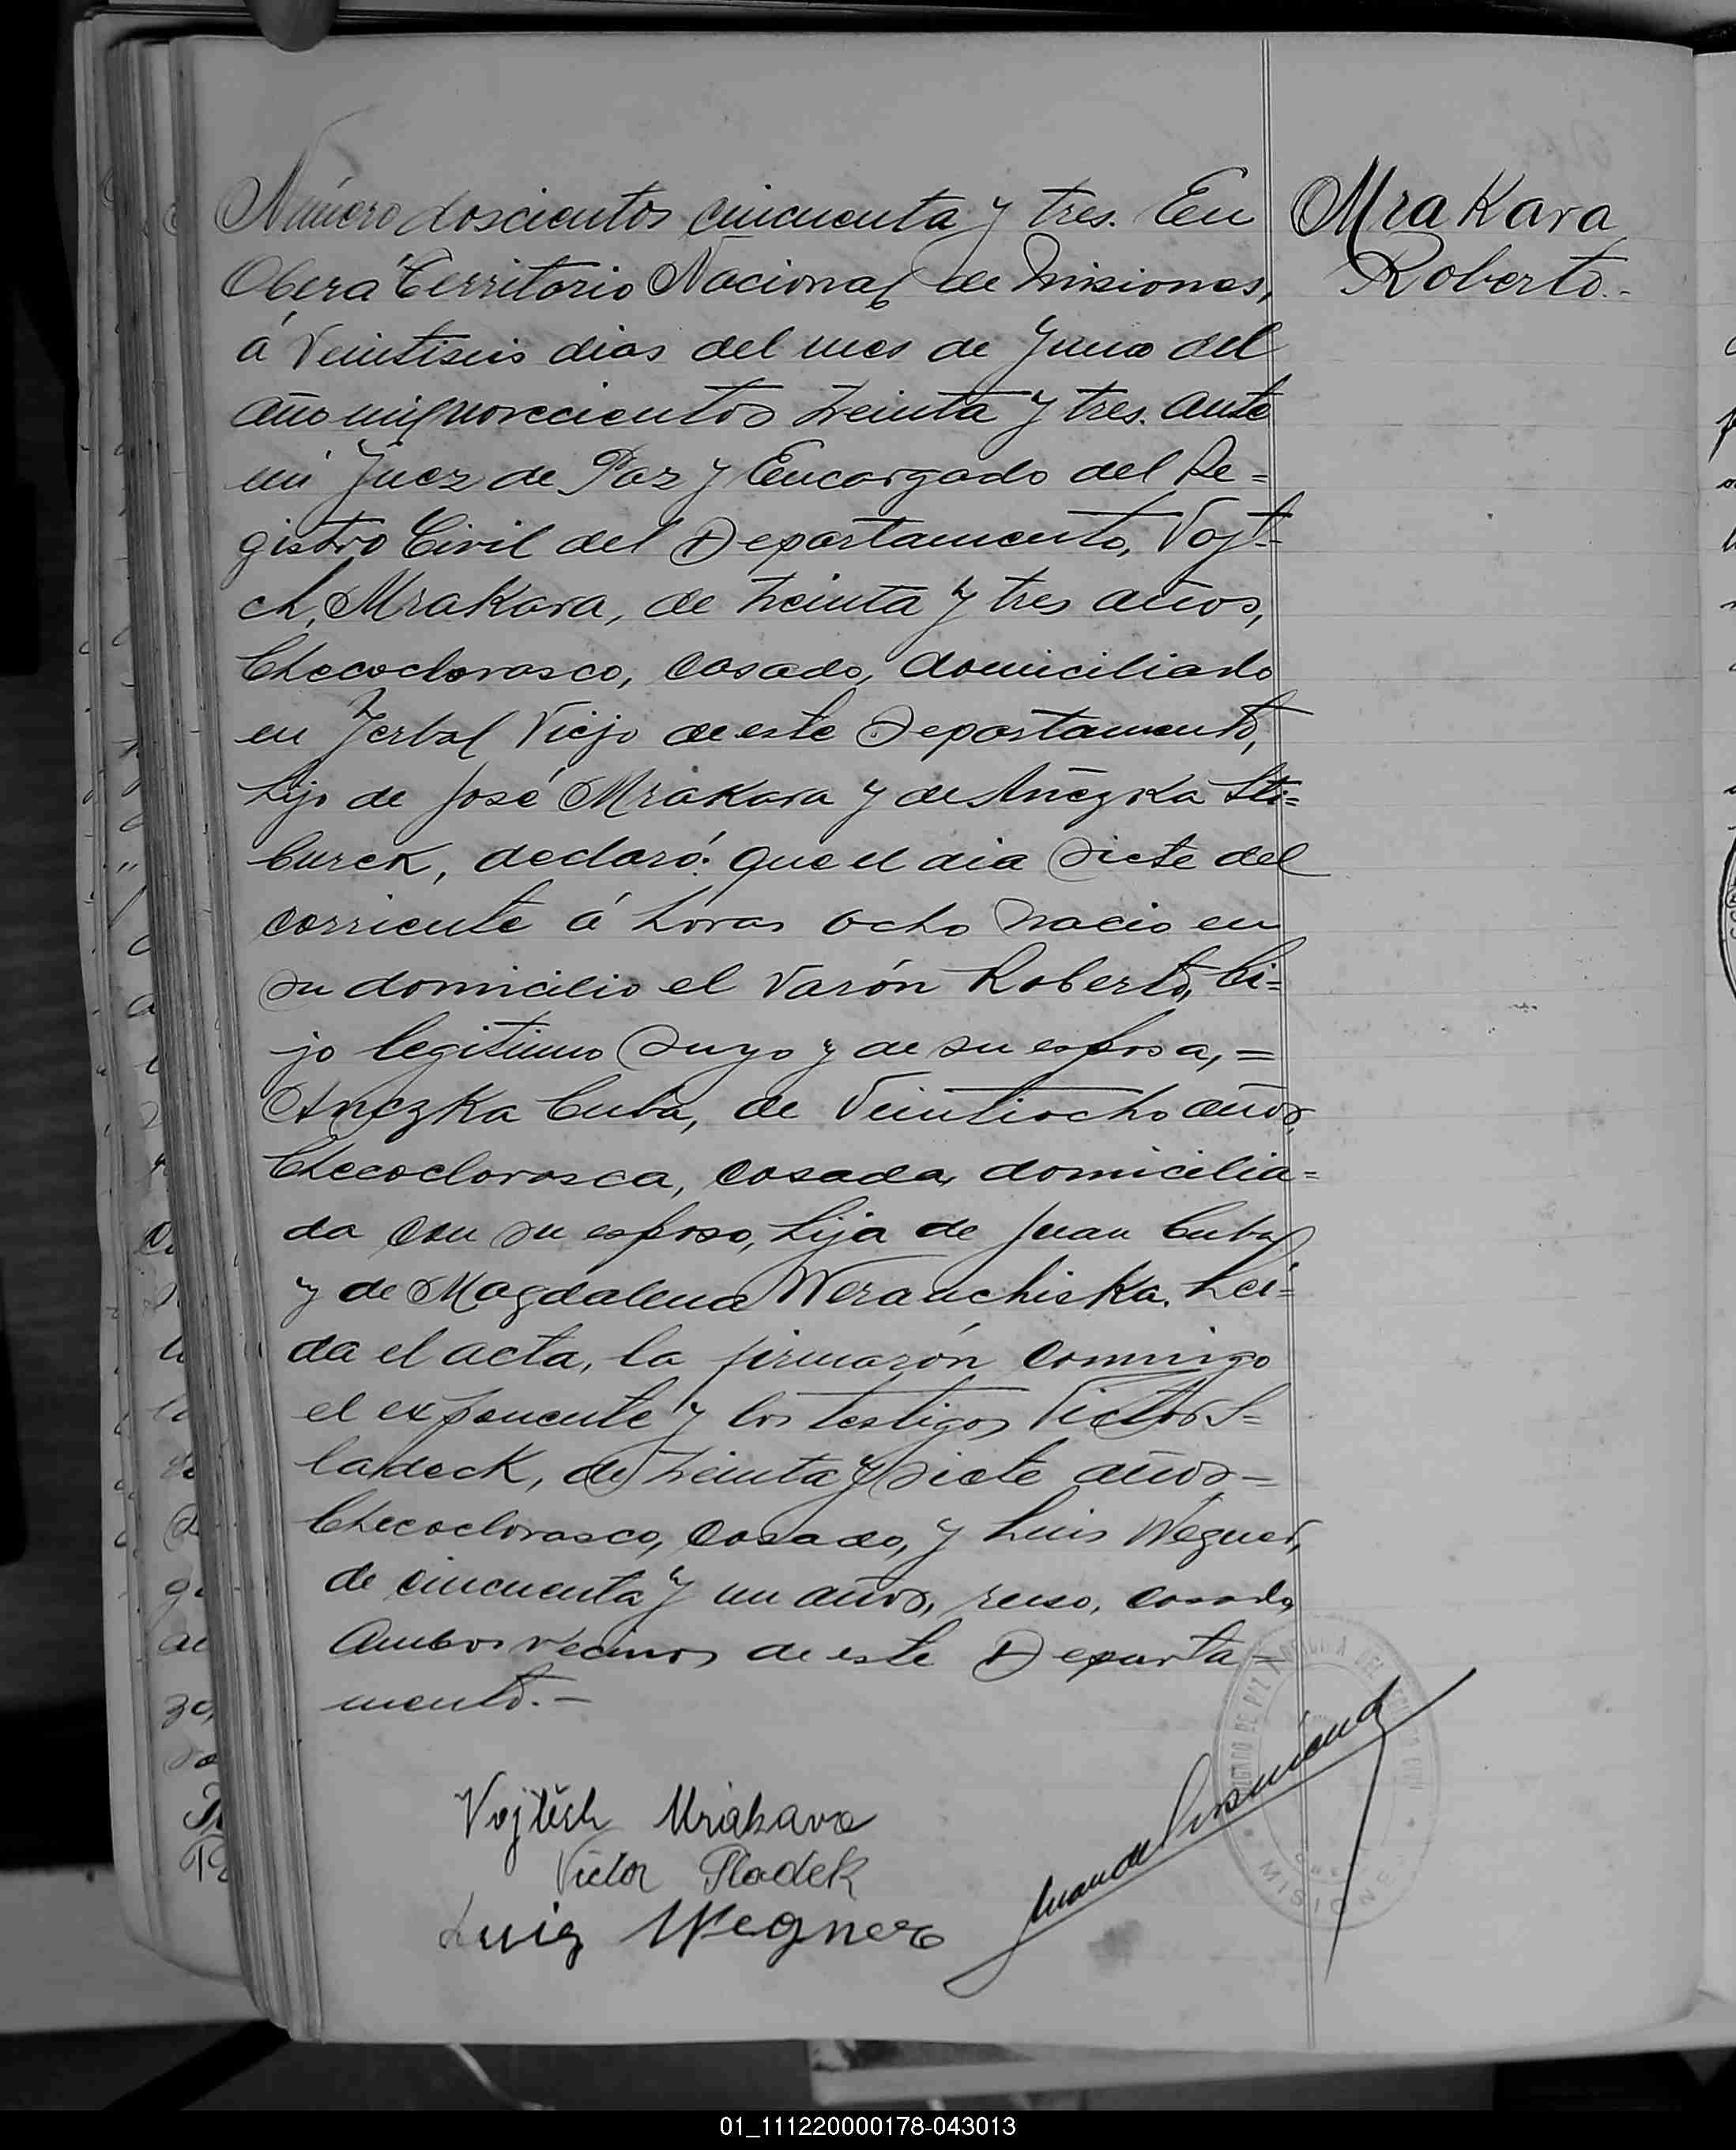 Número doscientos cincuenta y tres. En
Oberá Territorio Nacional de Misiones,
á Veintiseis dias del mes de Junio del
año mil novecientos treinta y tres. ante
mi Juez de Paz y Encargado del Re=
gistro Civil del Departamento, Vojt=
ch, Mrakava, de treinta y tres años,
Checoclovasco, casado, domiciliado
en Yerbal Viejo de este Departamento,
hijo de José Mrakava y de Añezka Sti=
burek, declaró: que el dia siete del
corriente á horas ocho nacio en
su domicilio el varón Roberto, hi=
jo legitimo suyo y de su esposa, =
Anezka Cuba, de Veintiocho años,
Checoclovasca, casada, domicilia=
da con su esposo, hija de Juan Cuba
y de Magdalena Weranchiska. Lei=
da el acta, la firmarón conmigo
el exponente y los testigos Victor S=
ladeck, de treinta y siete años =
Checoclovasco, casado, y Luis Wegner,
de cincuenta y un años, ruso, casado,
Ambos vecinos de este Departa=
mento. -
Mrakava
Roberto.-
Vojtěch Mrákava
Victor Sladek
Luis Wegner
MISIONES
01_111220000178-043013